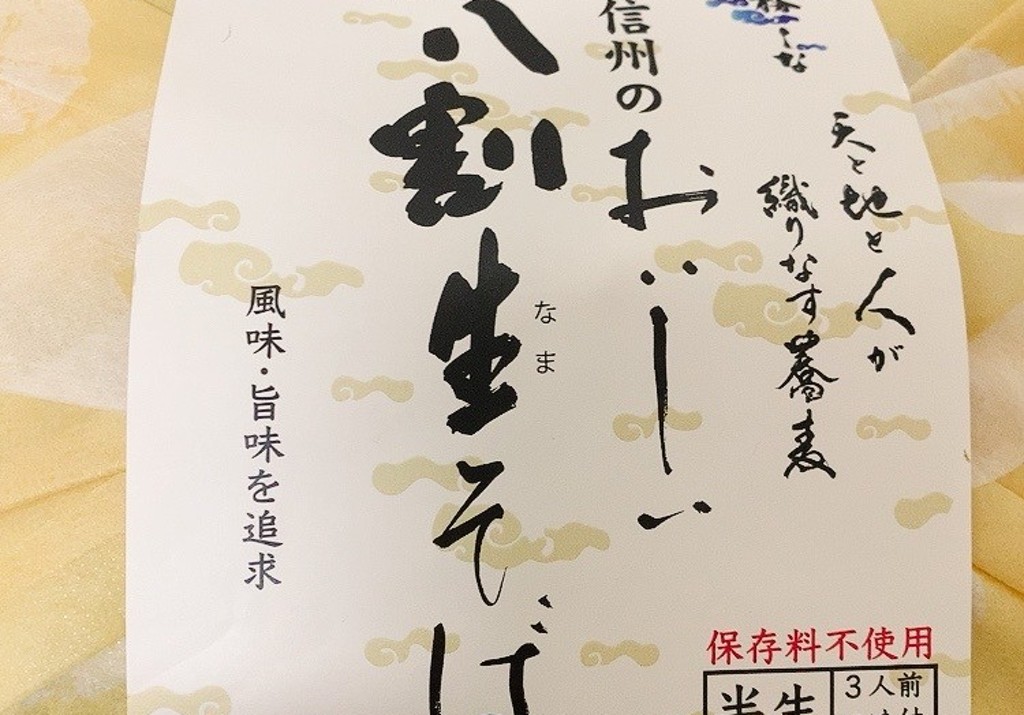 天と地と人が
織りなす蕎麦
信州の
おいしい
八割生そば
なま
風味・旨味を追求
保存料不使用
半生
3人前